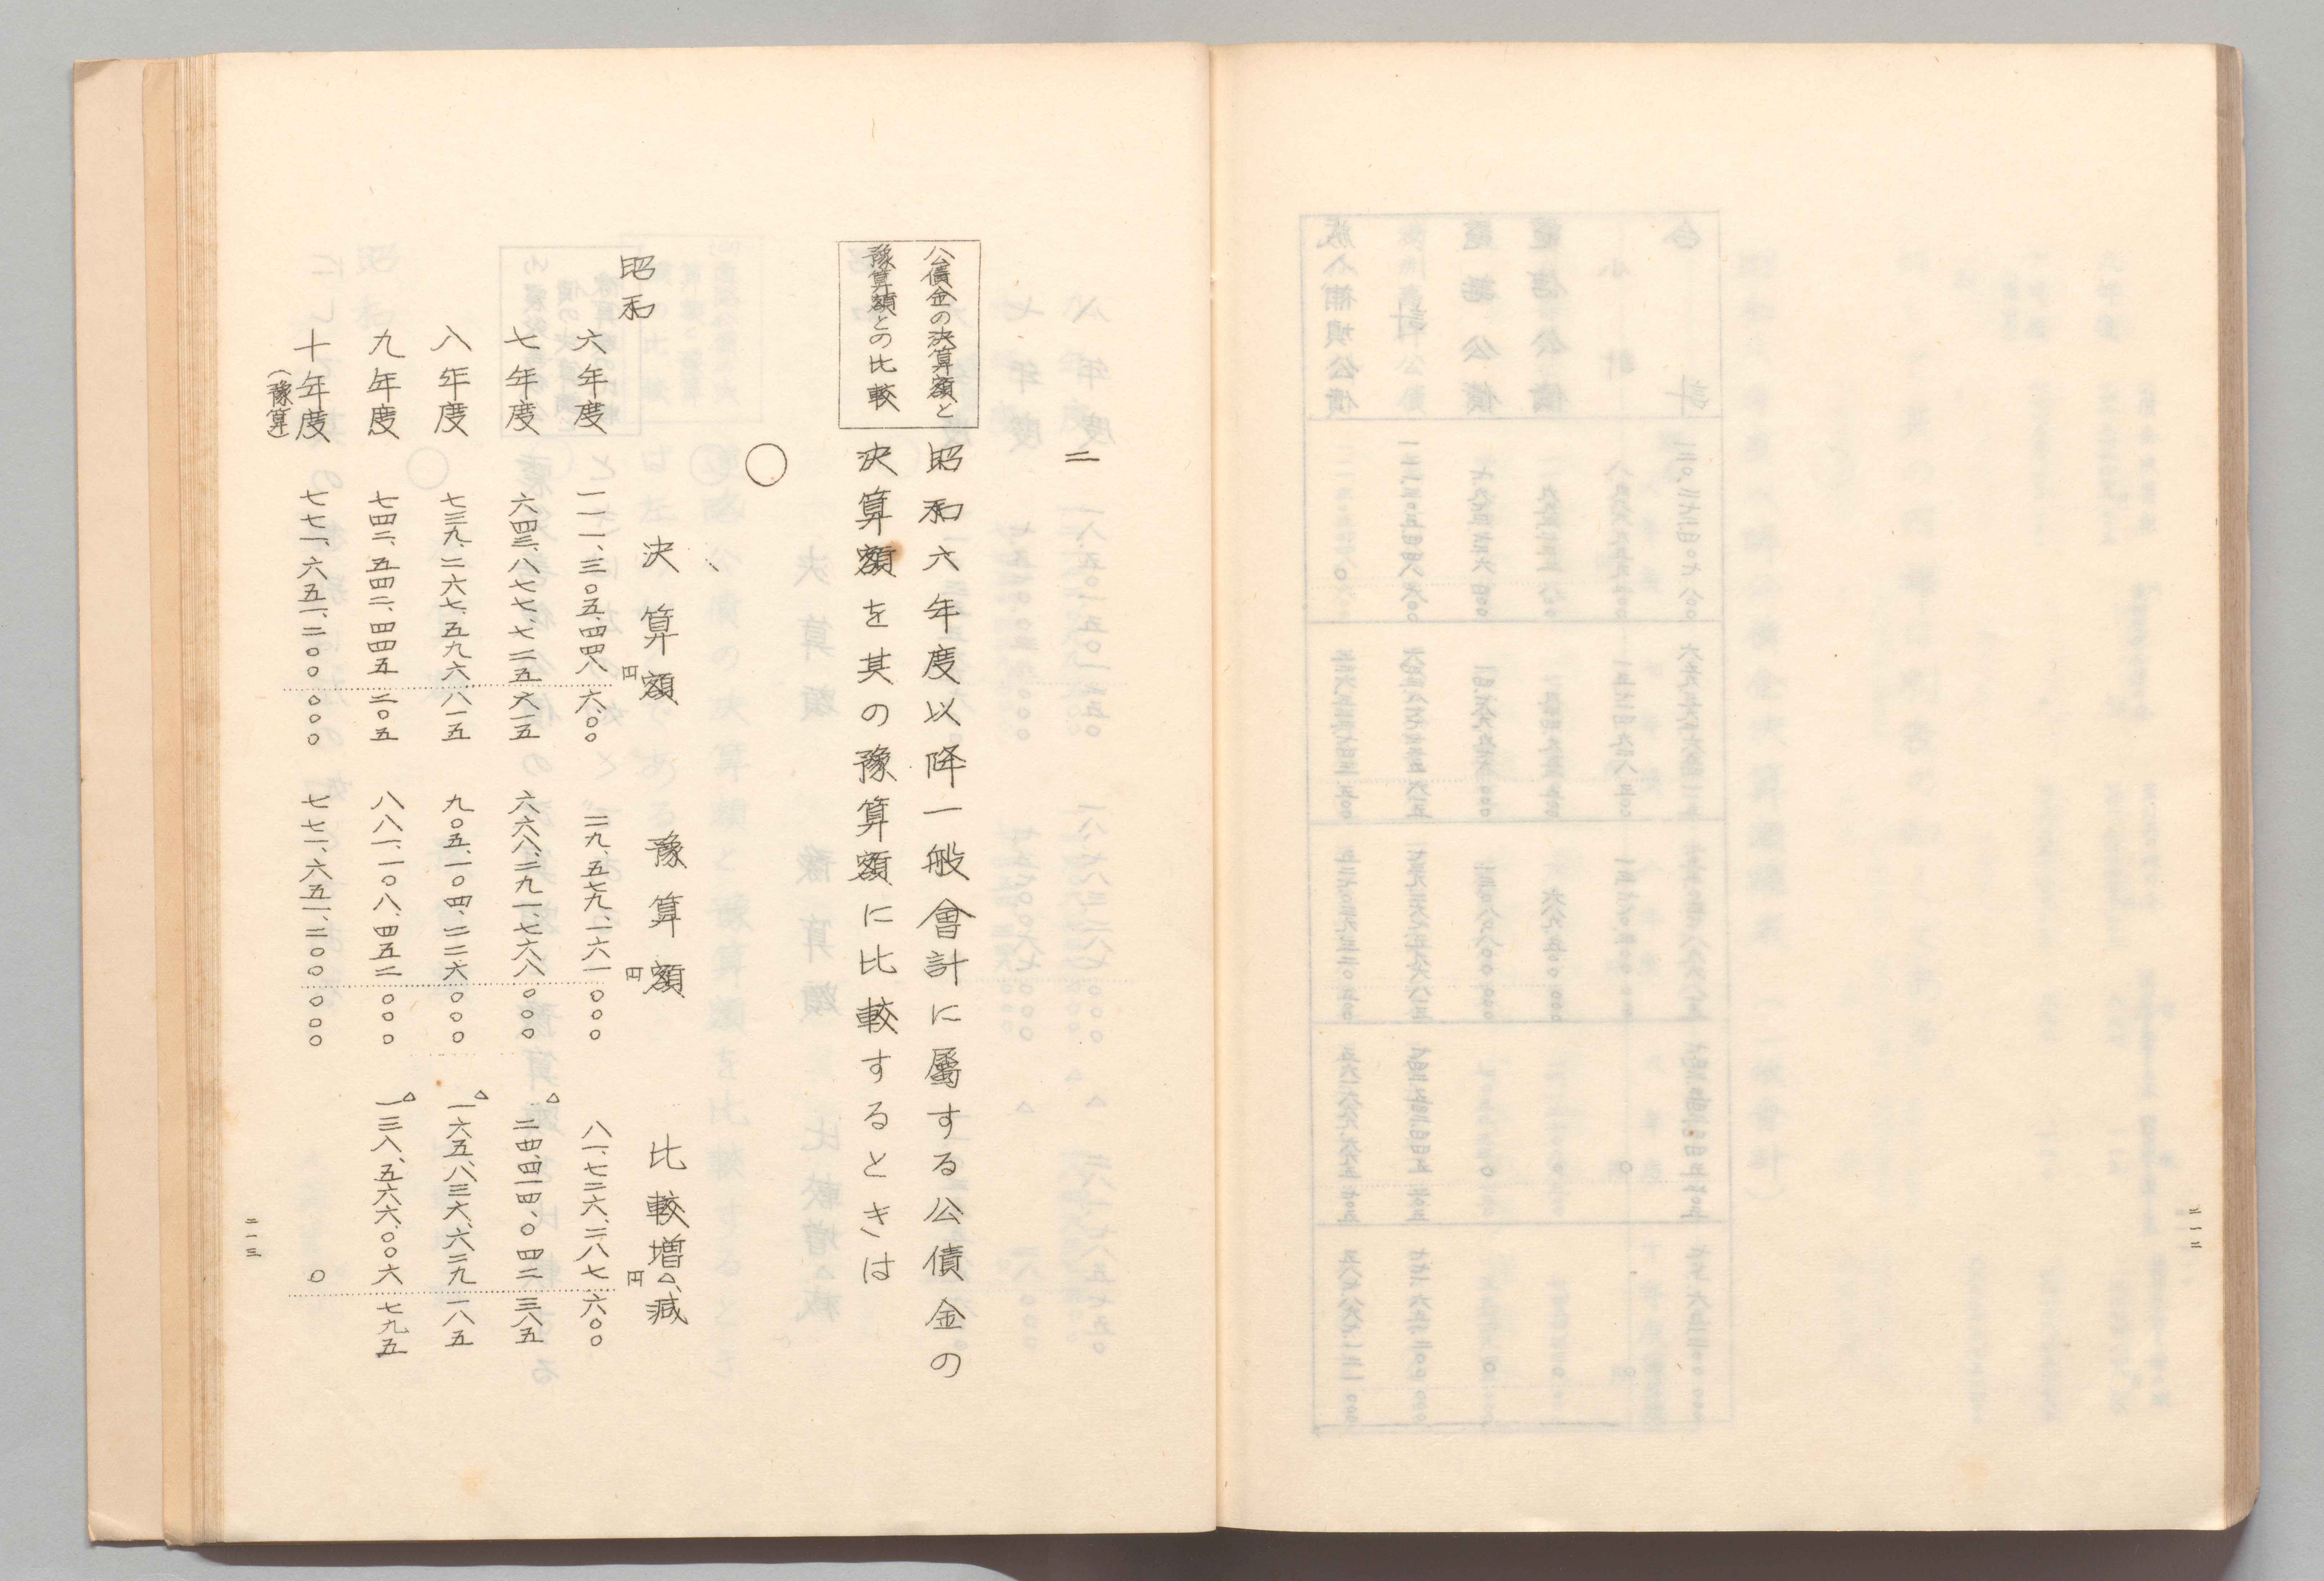 二一二
二
公債金の決算額と
豫算額との比較
昭和六年度以降一般會計に屬する公債金の
決算額を其の豫算額に比較するときは
○
決算額 豫算額 比較増△減
昭和 円 円 円
六年度 一一一、三〇五、四四八 六〇〇 二九、五七九、一六一 〇〇〇 八一、七二六、二八七 六〇〇
七年度 六四三、八七七、七二五 六一五 六六八、二九一、七六八 〇〇〇 △ 二四、四一四、〇四二 三八五
八年度 七三九、二六七、五九六 八一五 九〇五、一〇四、二二六 〇〇〇 △ 一六五、八三六、六二九 一八五
九年度 七四二、五四二、四四五 二〇五 八八一、一〇八、四五二 〇〇〇 △ 一三八、五六六、〇〇六 七九五
十年度 七七一、六五一、二〇〇 〇〇〇 七七一、六五一、二〇〇 〇〇〇 〇
(豫算)
二一三